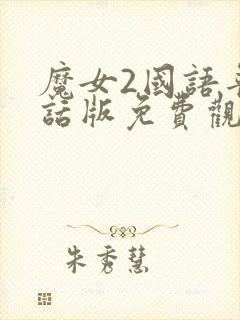 魔女2國語
話版免費觀
朱秀慧